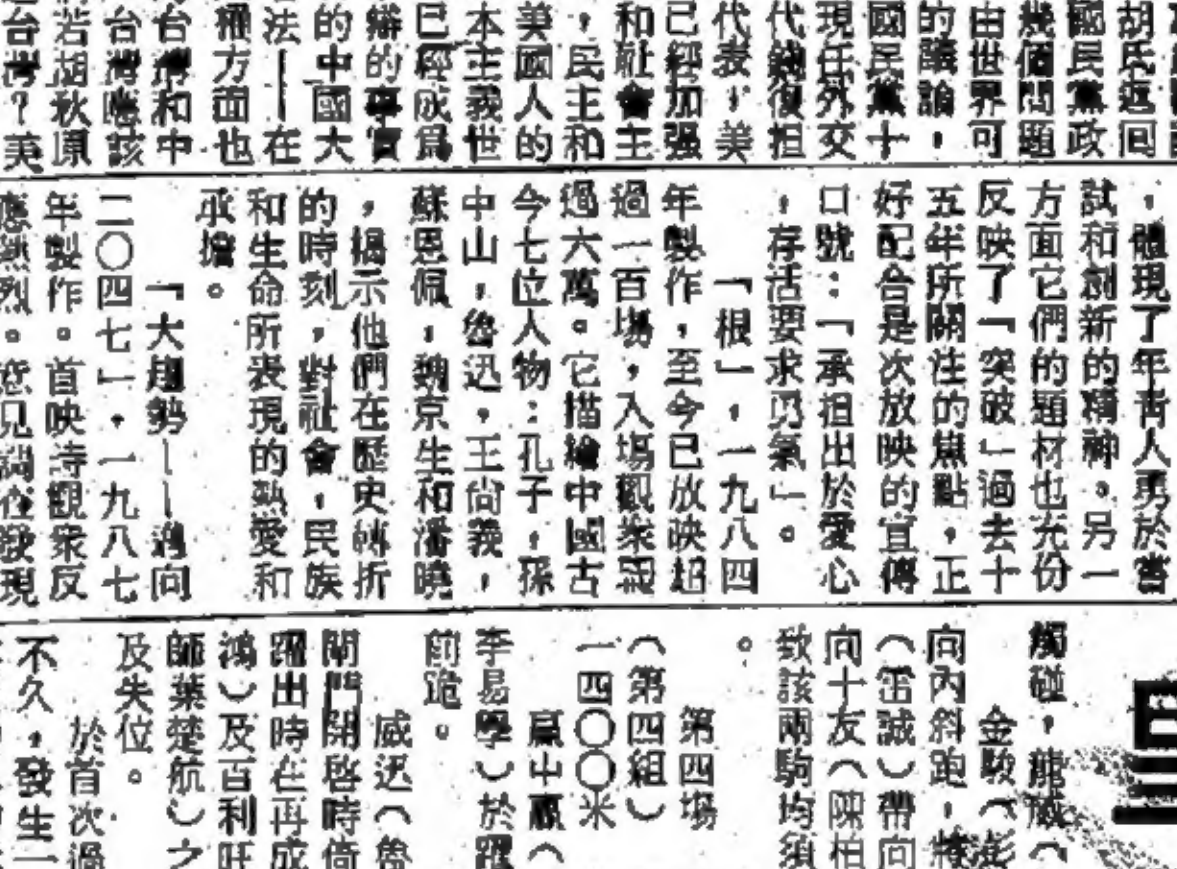 胡氏返回
國民黨政
幾個問題
由世界可
的議論，
國民黨十
現任外交
代錢復担
代表，美
已經加强
和社會主
，民主和
美國人的
本主義世
已經成爲
辯的事實
的中國大
法——在
方面也
台灣和中
台灣應該
若胡秋原
台灣？美
，體現了年青人勇於嘗
試和創新的精神。另一
方面它們的題材也充份
反映了「突破」過去十
五年所關注的焦點，正
好配合是次放映的宣傳
口號：「承担出於愛心
，存活要求勇氣」。
「根」，一九八四
年製作，至今已放映超
過一百場，入場觀衆
過六萬。它描繪中國古
今七位人物：孔子，孫
中山，魯迅，王尚義，
蘇恩佩，魏京生和潘曉
，揭示他們在歷史轉折
的時刻，對社會，民族
和生命所表現的熱愛和
承擔。
「大趨勢——邁向
二〇四七」，一九八七
年製作。首映時觀衆反
應熱烈。意見調查發現
觸碰，龍威（
金駿（彭
向內斜跑，將
（雷誠）帶向
向十友（陳柏
致該兩駒均須
。
第四場
（第四組）
一四〇〇米
贏中贏（
李易學）於躍
前跪。
威迅（魯
閘門開啓時倚
躍出時在再成
鴻）及百利旺
師葉楚航）之
及失位。
於首次過
不久，發生一